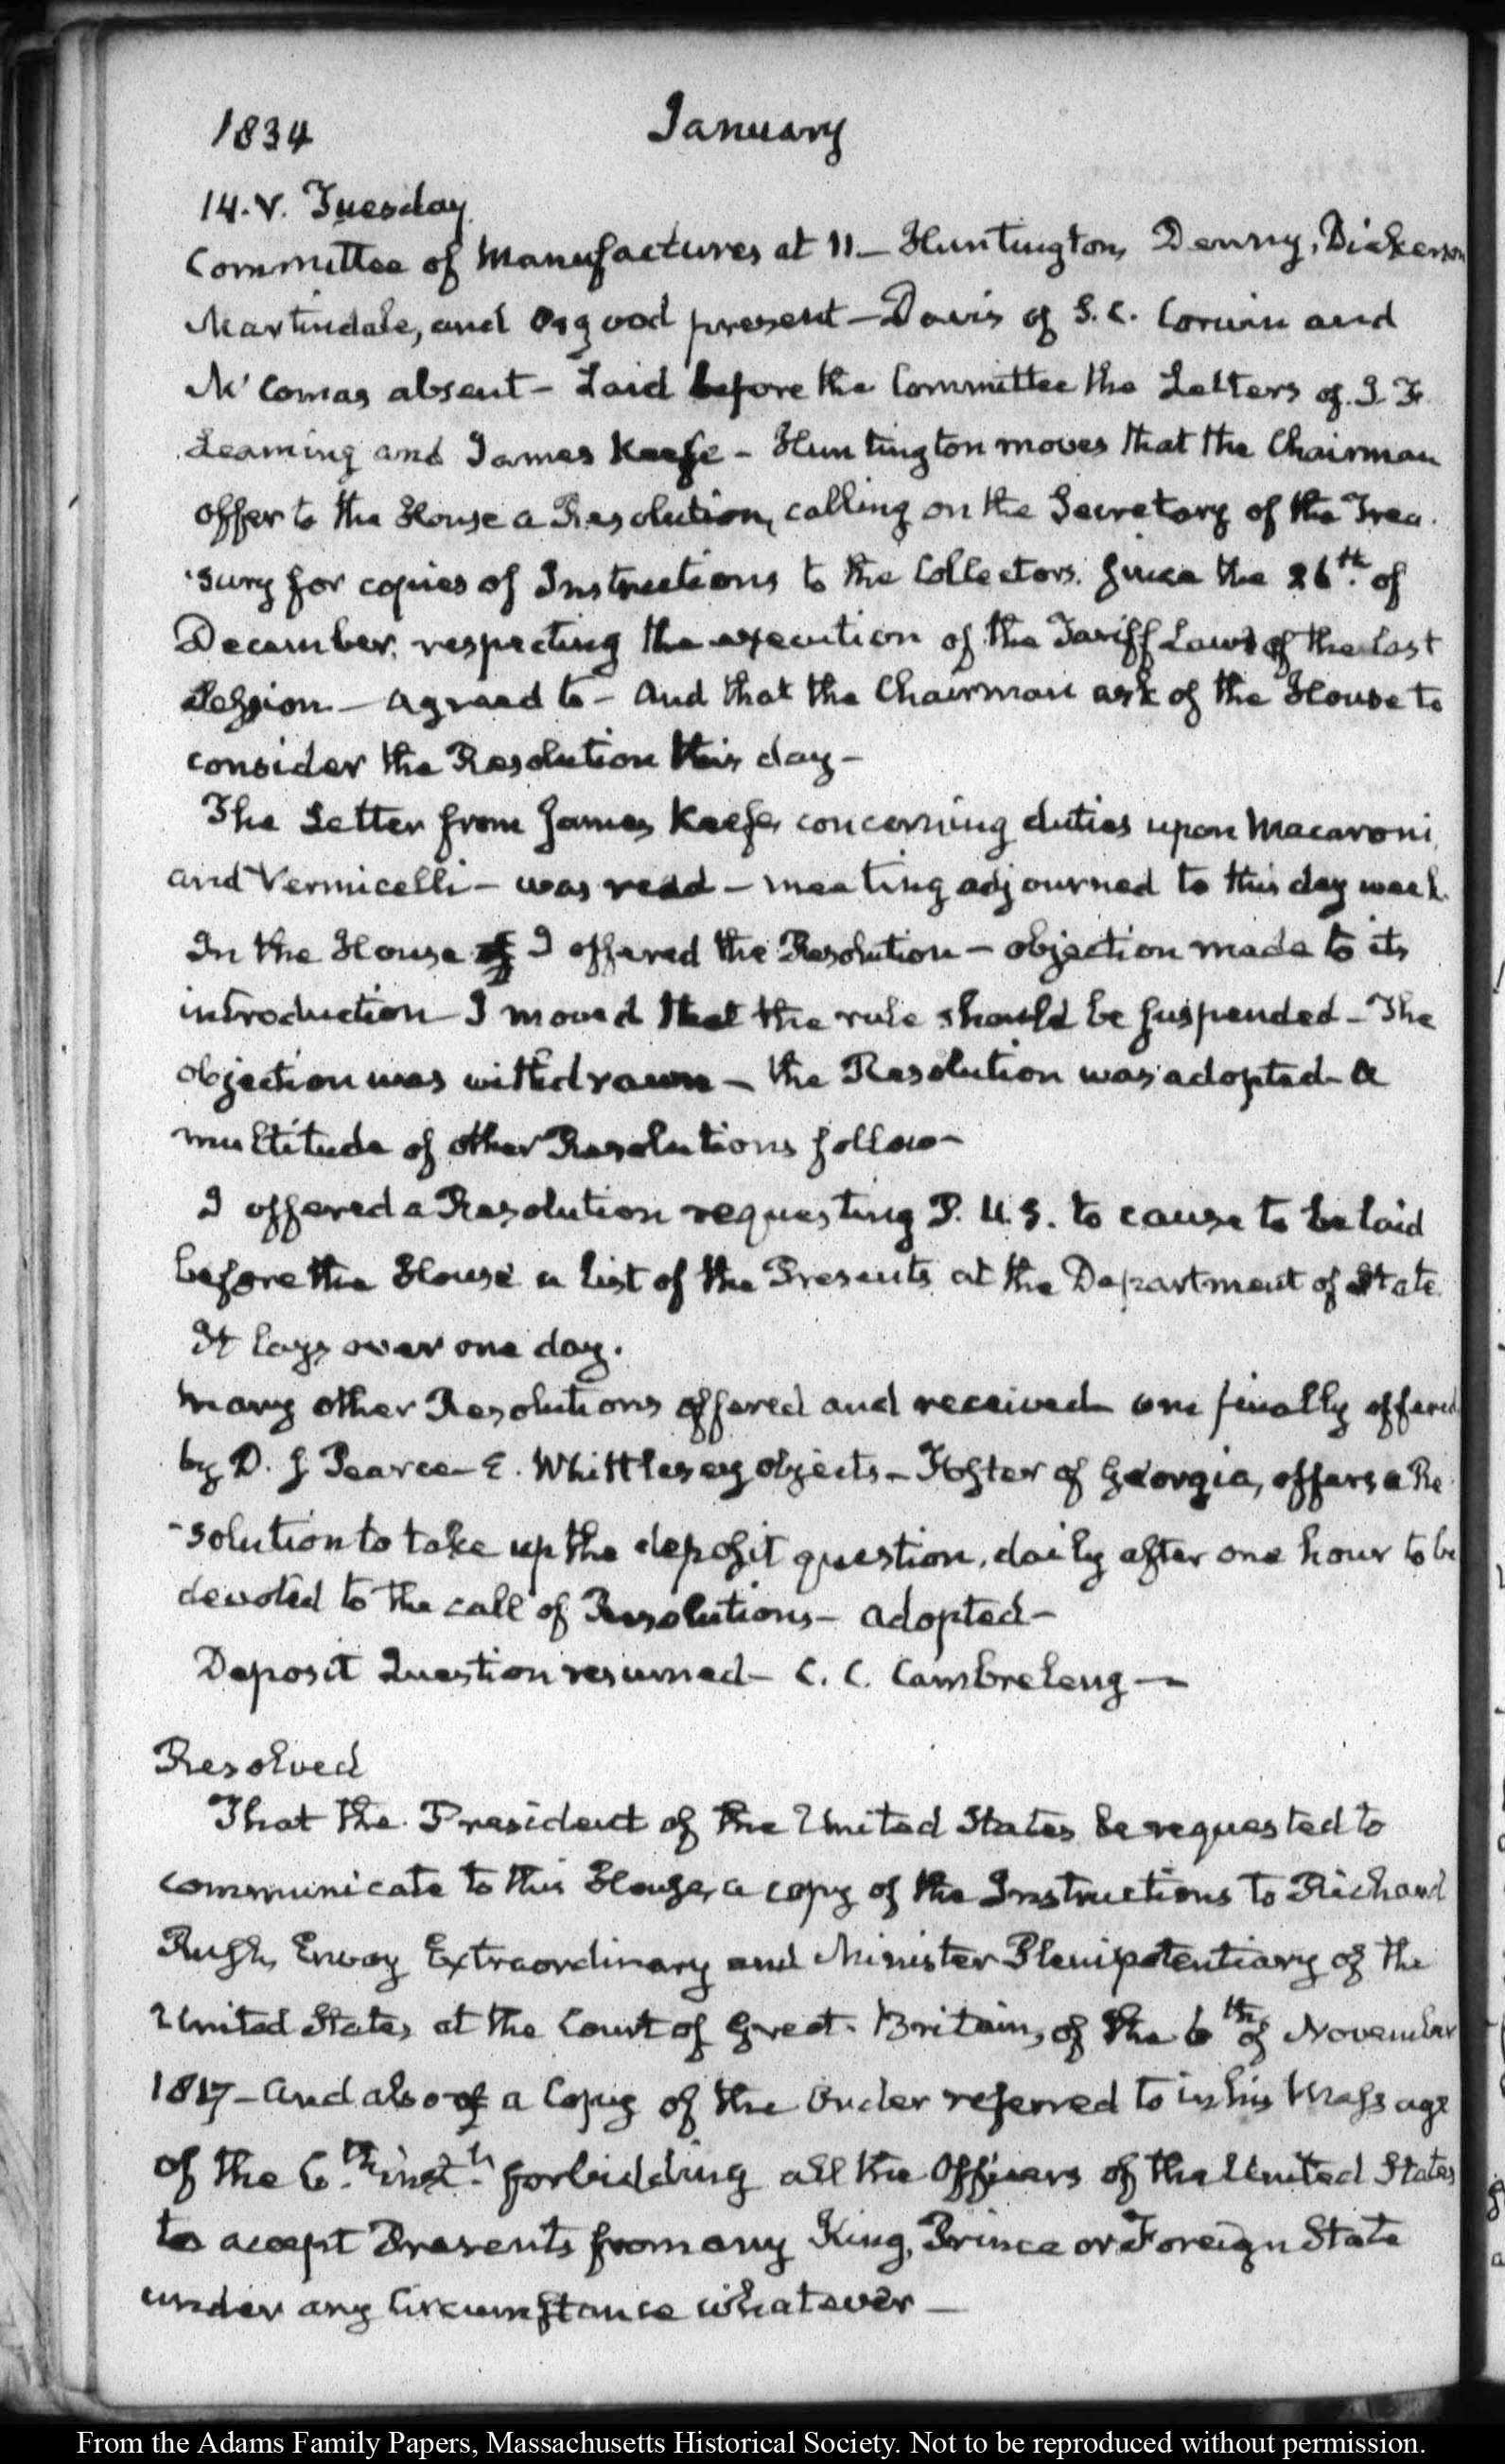 1834
January
14. V. Tuesday
Committee of Manufactures at 11 — Huntington, Denny, Dickerson
Martindale, and Osgood present — Davis of S. C. Corwin and
Mc Comas absent — Laid before the Committee the Letters of J. F.
Leaming and James Keefe — Huntington moves that the Chairman
offer to the House a Resolution, calling on the Secretary of the Trea-
-sury for copies of Instructions to the Collectors. since the 26th. of
December, respecting the execution of the Tariff Laws of the last
Session — Agreed to — And that the Chairman ask of the House to
consider the Resolution this day —
The Letter from James Keefe, concerning duties upon Macaroni,
and Vermicelli — was read — meeting adjourned to this day week.
In the House I offered the Resolution — objection made to its
introduction — I moved that the rule should be suspended — The
objection was withdrawn — the Resolution was adopted — A
multitude of other Resolutions follow —
I offered a Resolution requesting P. U. S. to cause to be laid
before the House a list of the Presents at the Department of State.
It lays over one day.
Many other Resolutions offered and received one finally offered
by D. J Pearce — E. Whittlesey objects — Foster of Georgia, offers a Re-
-solution to take up the deposit question, daily after one hour to be
devoted to the call of Resolutions — adopted —
Deposit Question resumed — C. C. Cambreleng —
Resolved
That the President of the United States be requested to
communicate to this House, a copy of the Instructions to Richard
Rush, Envoy Extraordinary and Minister Plenipotentiary of the
United States, at the Court of Great-Britain, of the 6th. of November
1817 — and also of a Copy of the Order referred to in his Message
of the 6th. inst. forbidding all the Officers of the United States
to accept Presents from any King, Prince or Foreign State
under any Circumstance whatever —
From the Adams Family Papers, Massachusetts Historical Society. Not to be reproduced without permission.